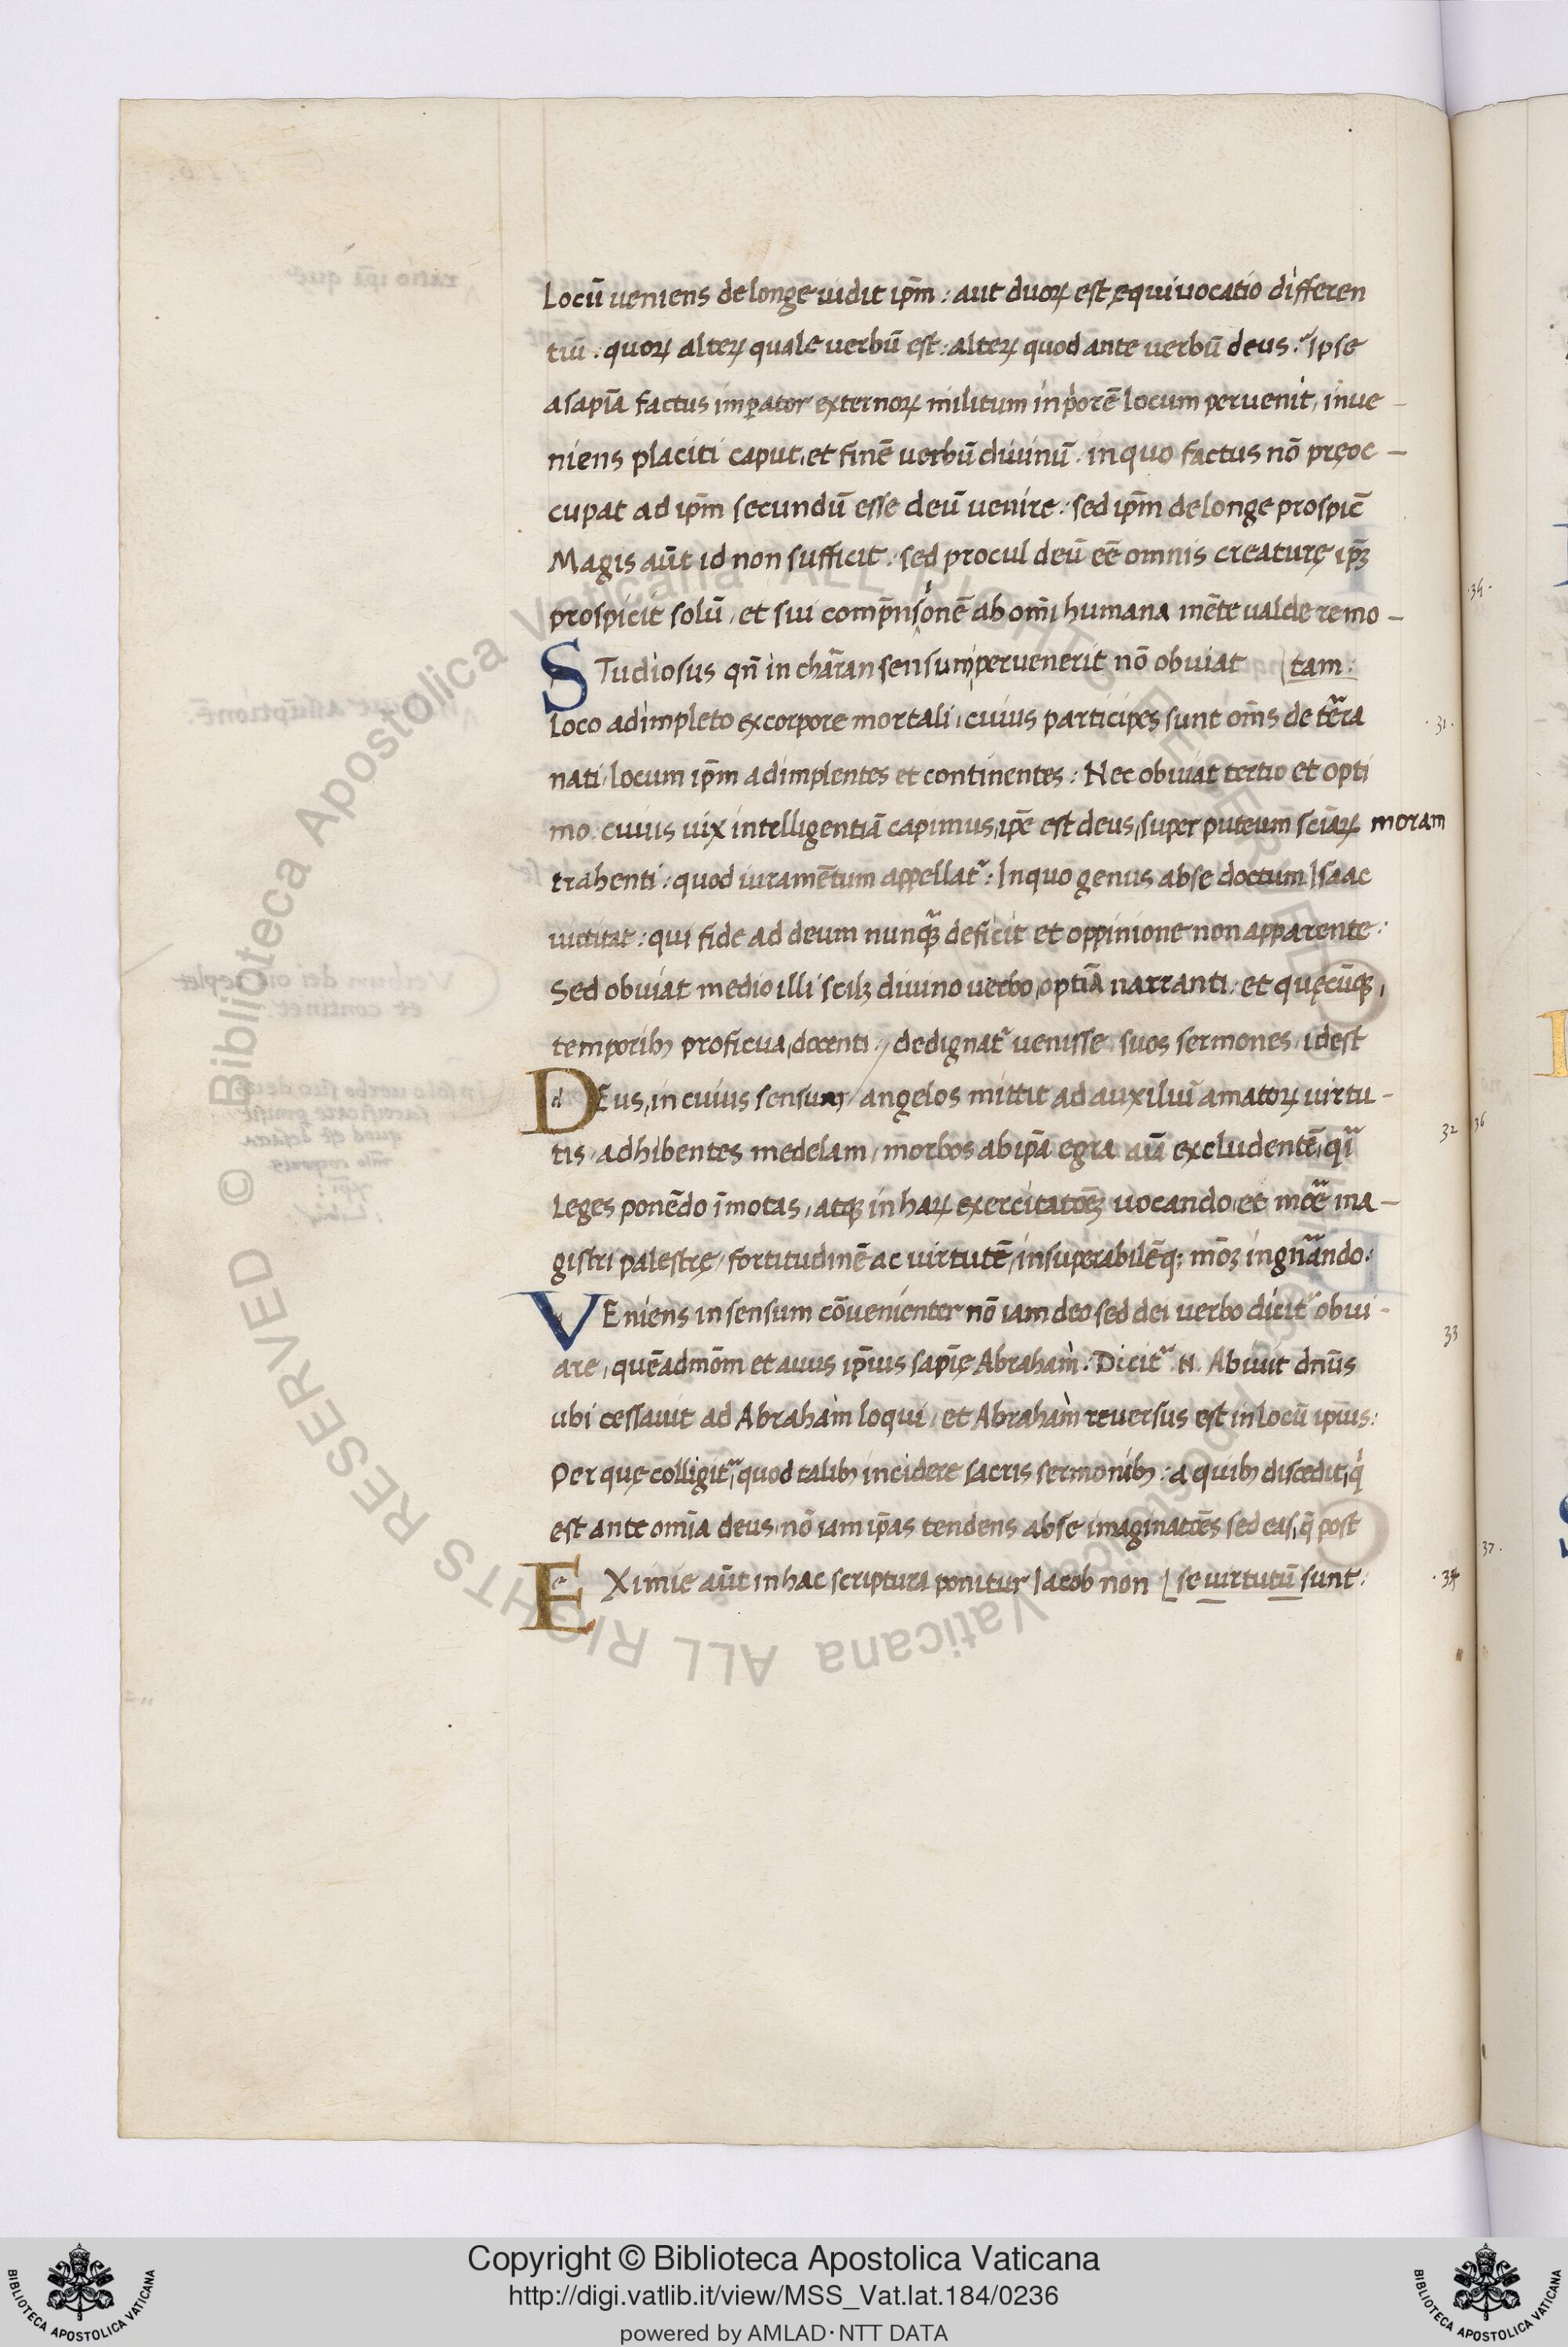 Locū ueniens de longe uidit ip̄m : aut duoꝝ est ęquiuocatio differen
tiū : quoꝝ alteꝝ quale uerbū est : alteꝝ quod ante uerbū deus : Ipse
a sapīa factus imꝑator externoꝝ militum in pͥorē locum peruenit, inue –
niens placiti caput, et finē uerbū diuinū : in quo factus nō pręoc –
cupat ad ip̄m secundū esse deū uenire : sed ip̄m de longe prospic̄
Magis aūt id non sufficit : sed procul deū eē omnis creaturę ip̄ꝫ
prospicit solū, et sui comp̄nsionē ab om̄i humana mēte ualde remo –
STudiosus qn̄ in charan sensum peruenerit nō obuiat [tam :
Loco adimpleto ex corpore mortali, cuius participes sunt om̄s de terra
nati, locum ip̄m adimplentes et continentes : Nec obuiat tertio et opti
mo. cuius uix intelligentiā capimus, ipē est deus, super puteum sciāꝝ moram
trahenti : quod iuramētum appellatᷣ : In quo genus ab se doctum Isaac
uictitat : qui fide ad deum nunqꝫ deficit et oppinione non apparente :
Sed obuiat medio illi scilꝫ diuino uerbo, optīā narranti, et quęcūqꝫ,
temporibꝫ proficua, docenti : dedignatᷣ uenisse suos sermones, idest
DEus, in cuius sensum, angelos mittit ad auxiluī amatoꝝ uirtu -
tis, adhibentes medelam, morbos ab ipā egra aīā excludentē, qͣ
Leges ponēdo īmotas, atqꝫ in haꝝ exercitatōeꝫ uocando, et mōre ma –
gistri palestrę, fortitudinē ac uirtutē, insuperabilēqꝫ mōꝫ ingnͣando :
VEniens in sensum cōuenienter nō iam deo sed dei uerbo dicitᷣ obui -
are, quēadmōm et auus ip̄ius sapīę Abraham : Dicitᷣ .N. Abiuit dn̄us
ubi cessauit ad Abraham loqui, et Abraham reuersus est in locū ip̄ius :
Per quę colligitᷣ, quod talibꝫ incidere sacris sermonibꝫ : a quibꝫ discedit, qͥ
est ante om̄ia deus, nō iam ip̄as tendens ab se imaginatōēs sed eas, q̄ post
EXimie aūt in hac scriptura ponitur Iacob non [se uirtutū sunt :
31.
32
33
.34
.35.
36
37.
Copyright © Biblioteca Apostolica Vaticana
http://digi.vatlib.it/view/MSS_Vat.lat.184/0236
powered by AMLAD·NTT DATA
© Biblioteca Apostolica Vaticana ALL RIGHTS RESERVED
BIBLIOTECA APOSTOLICA VATICANA
BIBLIOTECA APOSTOLICA VATICANA